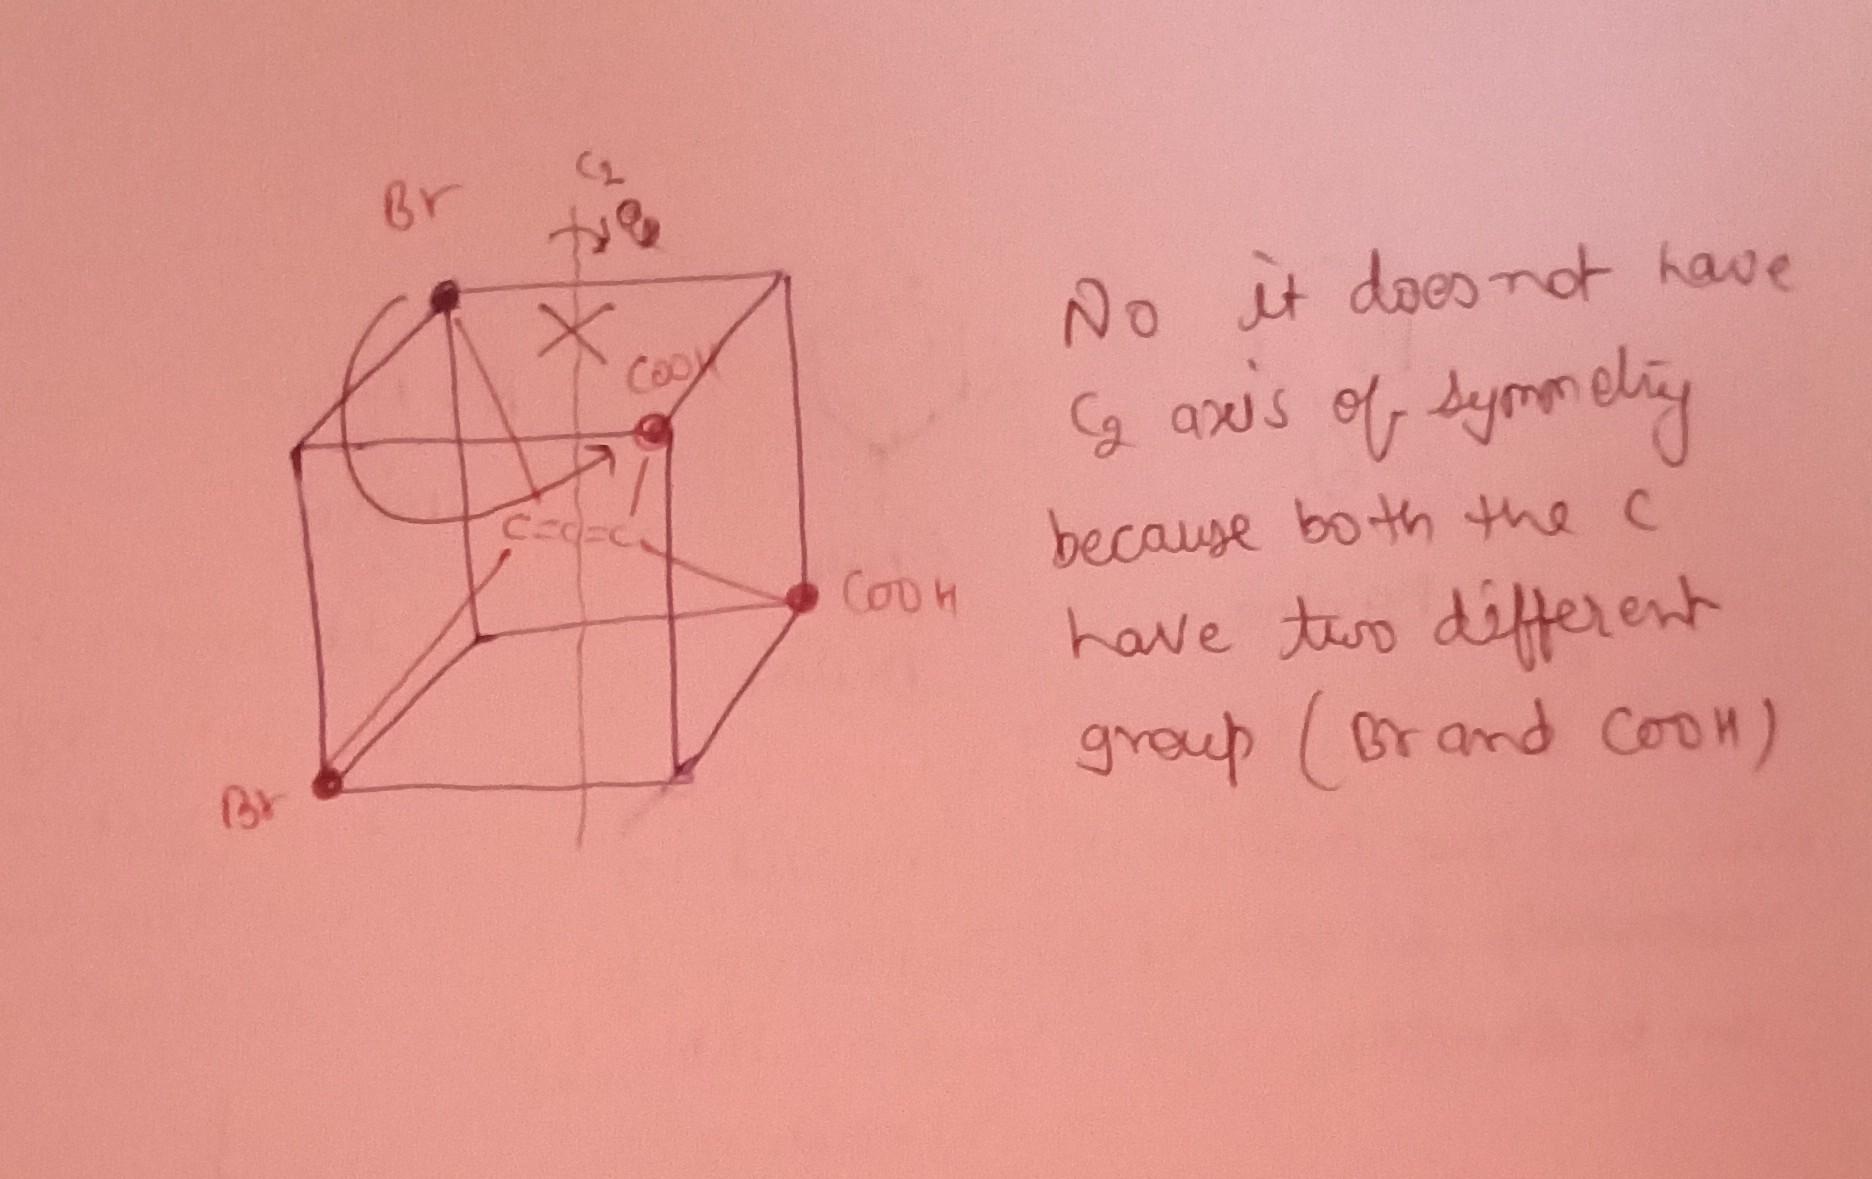 C2
Br
COOH
C=C=C
COOH
Br
No it does not have
C2 axis of symmetry
because both the C
have two different
group (Br and COOH)